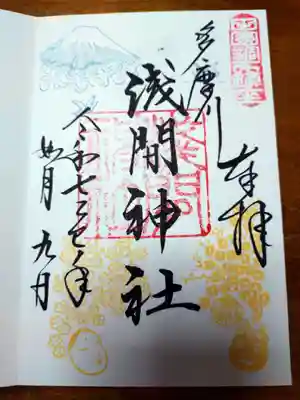 奉拝
多摩川
浅間神社
令和七乙巳年
如月 九日